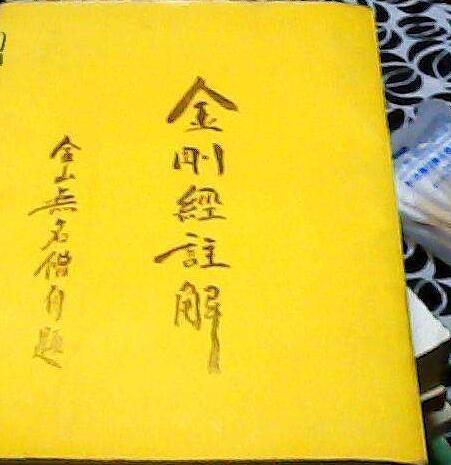 金剛經註解
金山無名僧自題